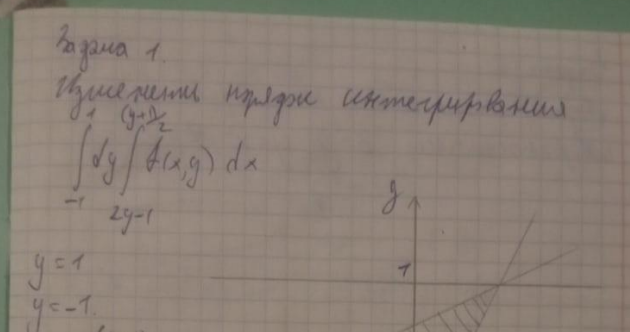 Задача 1.
Изменить порядк интегрирования
1 (y+1)/2
∫ dy ∫ f(x,y) dx
-1 2y-1
y
1
y = 1
y = -1